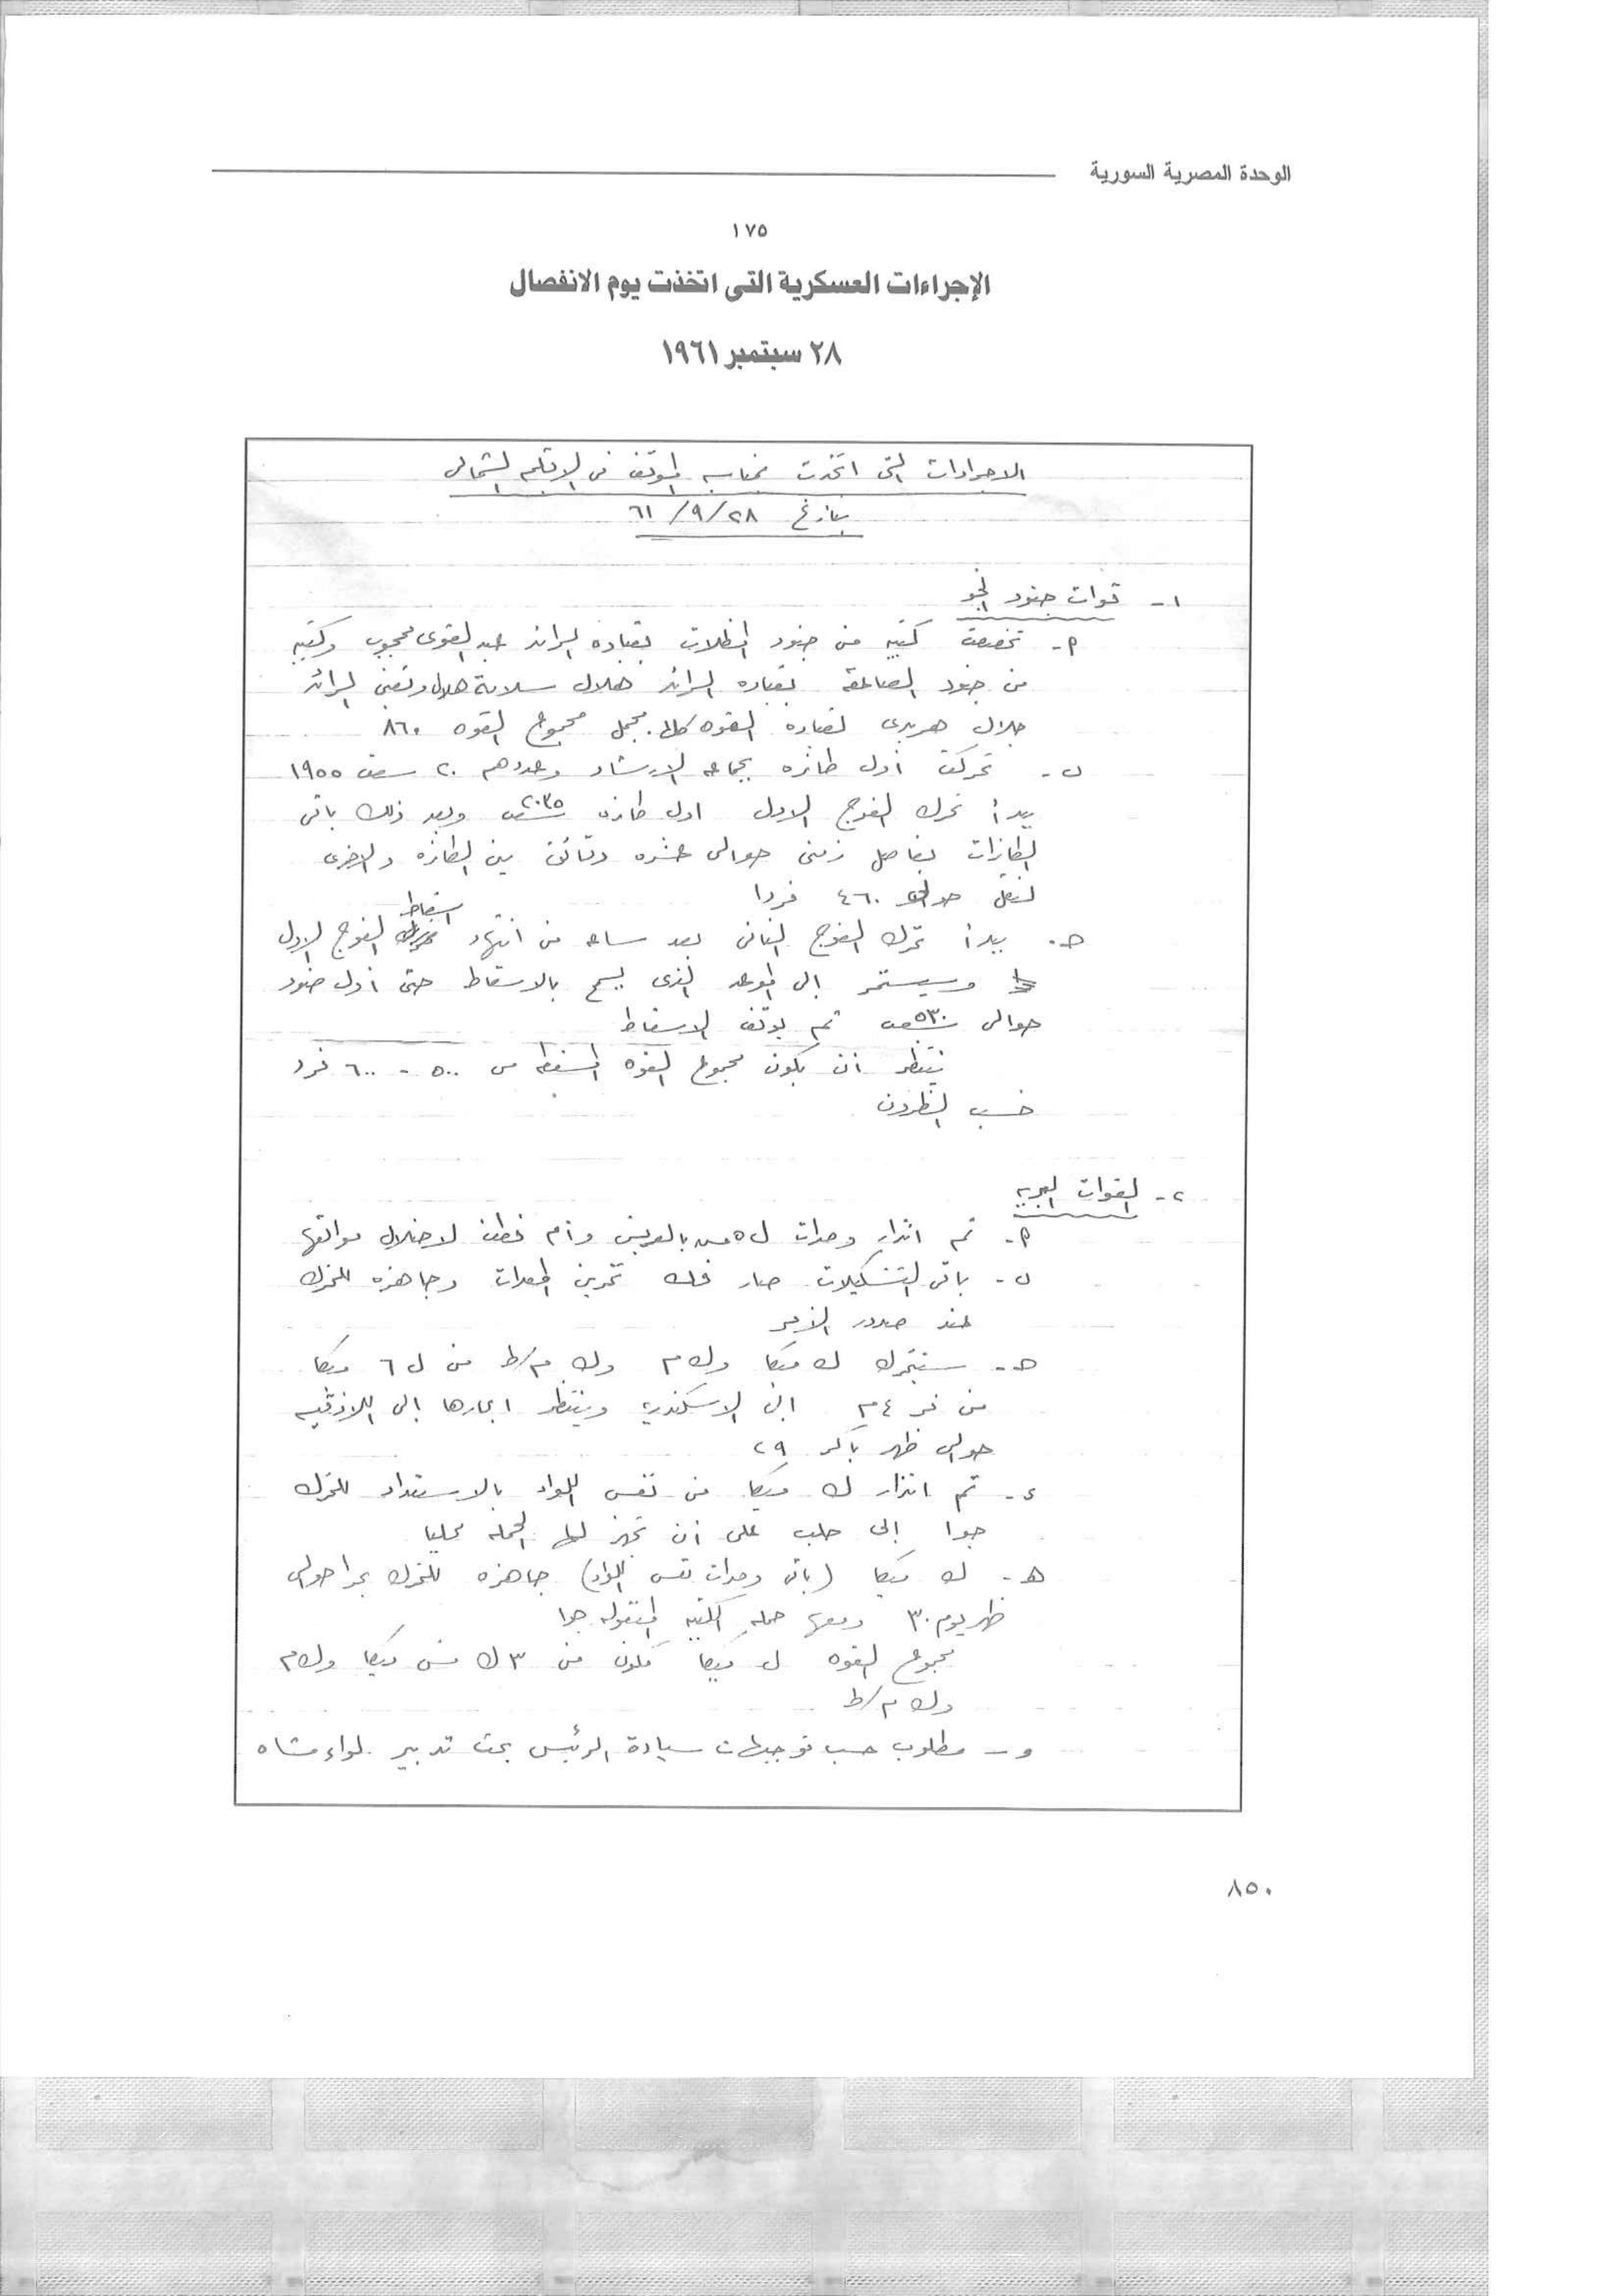 الوحدة المصرية السورية
١٧٥
الإجراءات العسكرية التى اتخذت يوم الانفصال
٢٨ سبتمبر ١٩٦١
الاجراءات التى اتخذت بمناسبه الموقف فى الاقليم الشمالى
بتاريخ ٢٨/٩/٦١
١- قوات جنود الجو
م- تخصصت كتيبه من جنود المظلات بقياده الرائد عبد القوى محجوب وكتيبه
من جنود الصاعقه بقياده الرائد هلال سلامة هلال وتعين الرائد
جلال هريدى لقياده القوه كلها. مجمل مجموع القوه ٨٦٠
ب- تحركت اول طائره بجماعه الارشاد وعددهم ٢٠ سعت ١٩٥٥
يبدأ تحرك الفوج الاول اول طائره سعت ٢٠٣٥ وبعد ذلك باقى
الطائرات بفاصل زمنى حوالى عشره دقائق بين الطائره والاخرى
لنقل حوالى ٤٦٠ فردا
حـ- يبدأ تحرك الفوج الثانى بعد ساعه من انتهاء اسقاط الفوج الاول
وسيستمر الى الموعد الذى يسمح بالاسقاط حتى اول ضوء
حوالى سعت ٥٣٠ ثم يوقف الاسقاط
ينتظر ان يكون مجموع القوه المسقطه من ٥٠٠ - ٦٠٠ فرد
حسب الظروف
٢- القوات البريه
م- تم انذار وحدات ل ٥ مش بالعريش و لاحتلال مواقعها
ب- باقى التشكيلات صار فك تخزين المعدات وجاهزه للتحرك
عند صدور الامر
حـ- ستتحرك ك ميكا وك م وك م/ط من ل ٦ ميكا
من فر ٤ م الى الاسكندريه وينتظر ابحارها الى اللاذقيه
حوالى ظهر باكر ٢٩
ء- تم انذار ك ميكا من نفس اللواء بالاستعداد للتحرك
جوا الى حلب على ان تجهز لها الحمله محليا
هـ- ك ميكا (باقى وحدات نفس اللواء) جاهزه للتحرك بحرا حوالى
ظهر يوم ٣٠ ومعها حمله الكتيبه المنقوله جوا
مجموع القوه ل ميكا مكون من ٣ ك مش ميكا وك م
وك م/ط
و- مطلوب حسب توجيهات سيادة الرئيس بحث تدبير لواء مشاه
٨٥٠